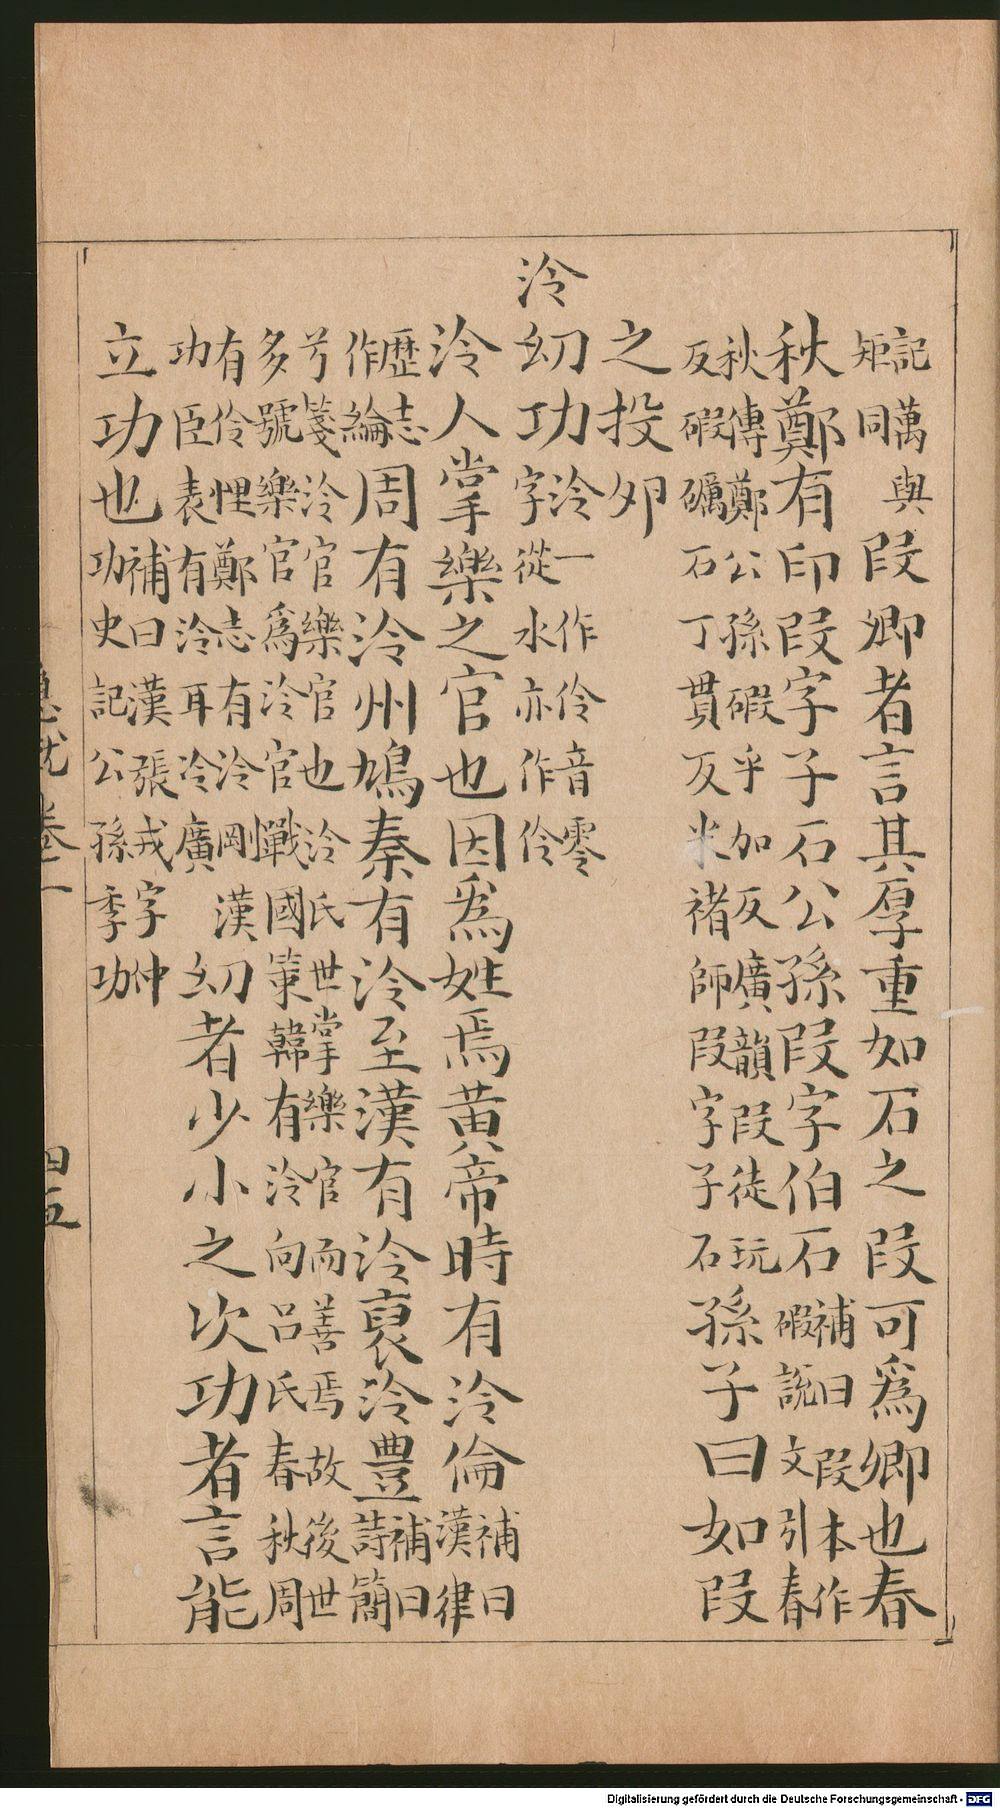 記萬與矩同段卿者言其厚重如石之段可爲卿也春
秋鄭有印段字子石公孫段字伯石補曰段本作碬說文引春
秋傳鄭公孫碬乎加反廣韻段徒玩反碬礪石丁貫反米褚師段字子石孫子曰如段
之投夘
泠幼功泠一作伶音零字從水亦作伶
泠人掌樂之官也因爲姓焉黃帝時有泠倫補曰漢律
歷志作綸周有泠州鳩秦有泠至漢有泠裒泠豊補曰詩簡
兮箋泠官樂官也泠氏世掌樂官而善焉故後世多號樂官爲泠官戰國策韓有泠向呂氏春秋周
有伶悝鄭志有泠剛漢功臣表有泠耳泠廣幼者少小之次功者言能
立功也補曰漢張戎字仲功史記公孫季功
急就 卷二 四五
Digitalisierung gefördert durch die Deutsche Forschungsgemeinschaft - DFG